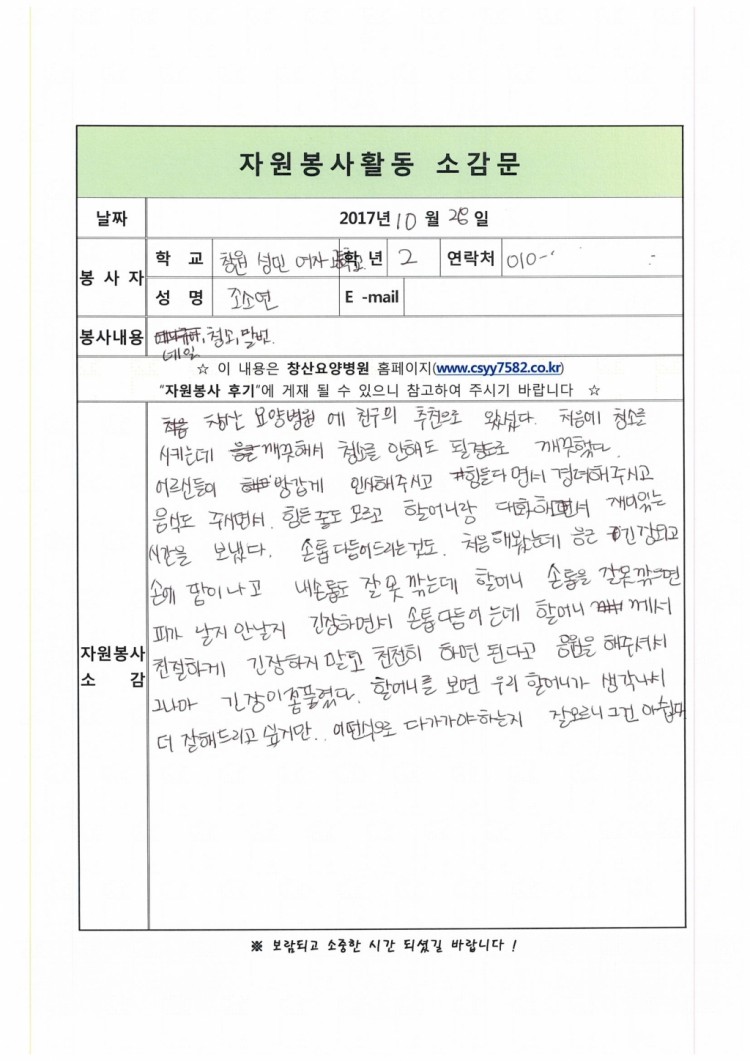 자원봉사활동 소감문
날짜 2017년 10 월 28 일
봉사자 학교 창원 성민 여자고등학교 학년 2 연락처 010-
성명 조소연 E -mail
봉사내용 네일, 청소, 말벗.
☆ 이 내용은 창산요양병원 홈페이지(www.csyy7582.co.kr)
"자원봉사 후기"에 게재 될 수 있으니 참고하여 주시기 바랍니다 ☆
자원봉사 소감
처음 창산 요양병원 에 친구의 추천으로 왔섰다. 처음에 청소를
시키는데 깨끗해서 청소를 안해도 될정도로 깨끗했다.
어르신들이 방갑게 인사해주시고 힘들다면서 격려해주시고
음식도 주시면서. 힘든줄도 모르고 할머니랑 대화하면서 재미있는
시간을 보냈다. 손톱다듬어드리는것도. 처음해봤는데 은근 긴장되고
손에 땀이나고 내손톱도 잘 못 깎는데 할머니 손톱을 잘못깎으면
피가 날지 안날지 긴장하면서 손톱다듬어 는데 할머니 께서
친절하게 긴장하지 말고 천천히 하면 된다고 응원을 해주셔서
그나마 긴장이 좀풀렸다. 할머니를 보면 우리 할머니가 생각나서
더 잘해드리고 싶지만.. 어떤식으로 다가가야하는지 잘모르니 그건 아쉽다
※ 보람되고 소중한 시간 되셨길 바랍니다 !